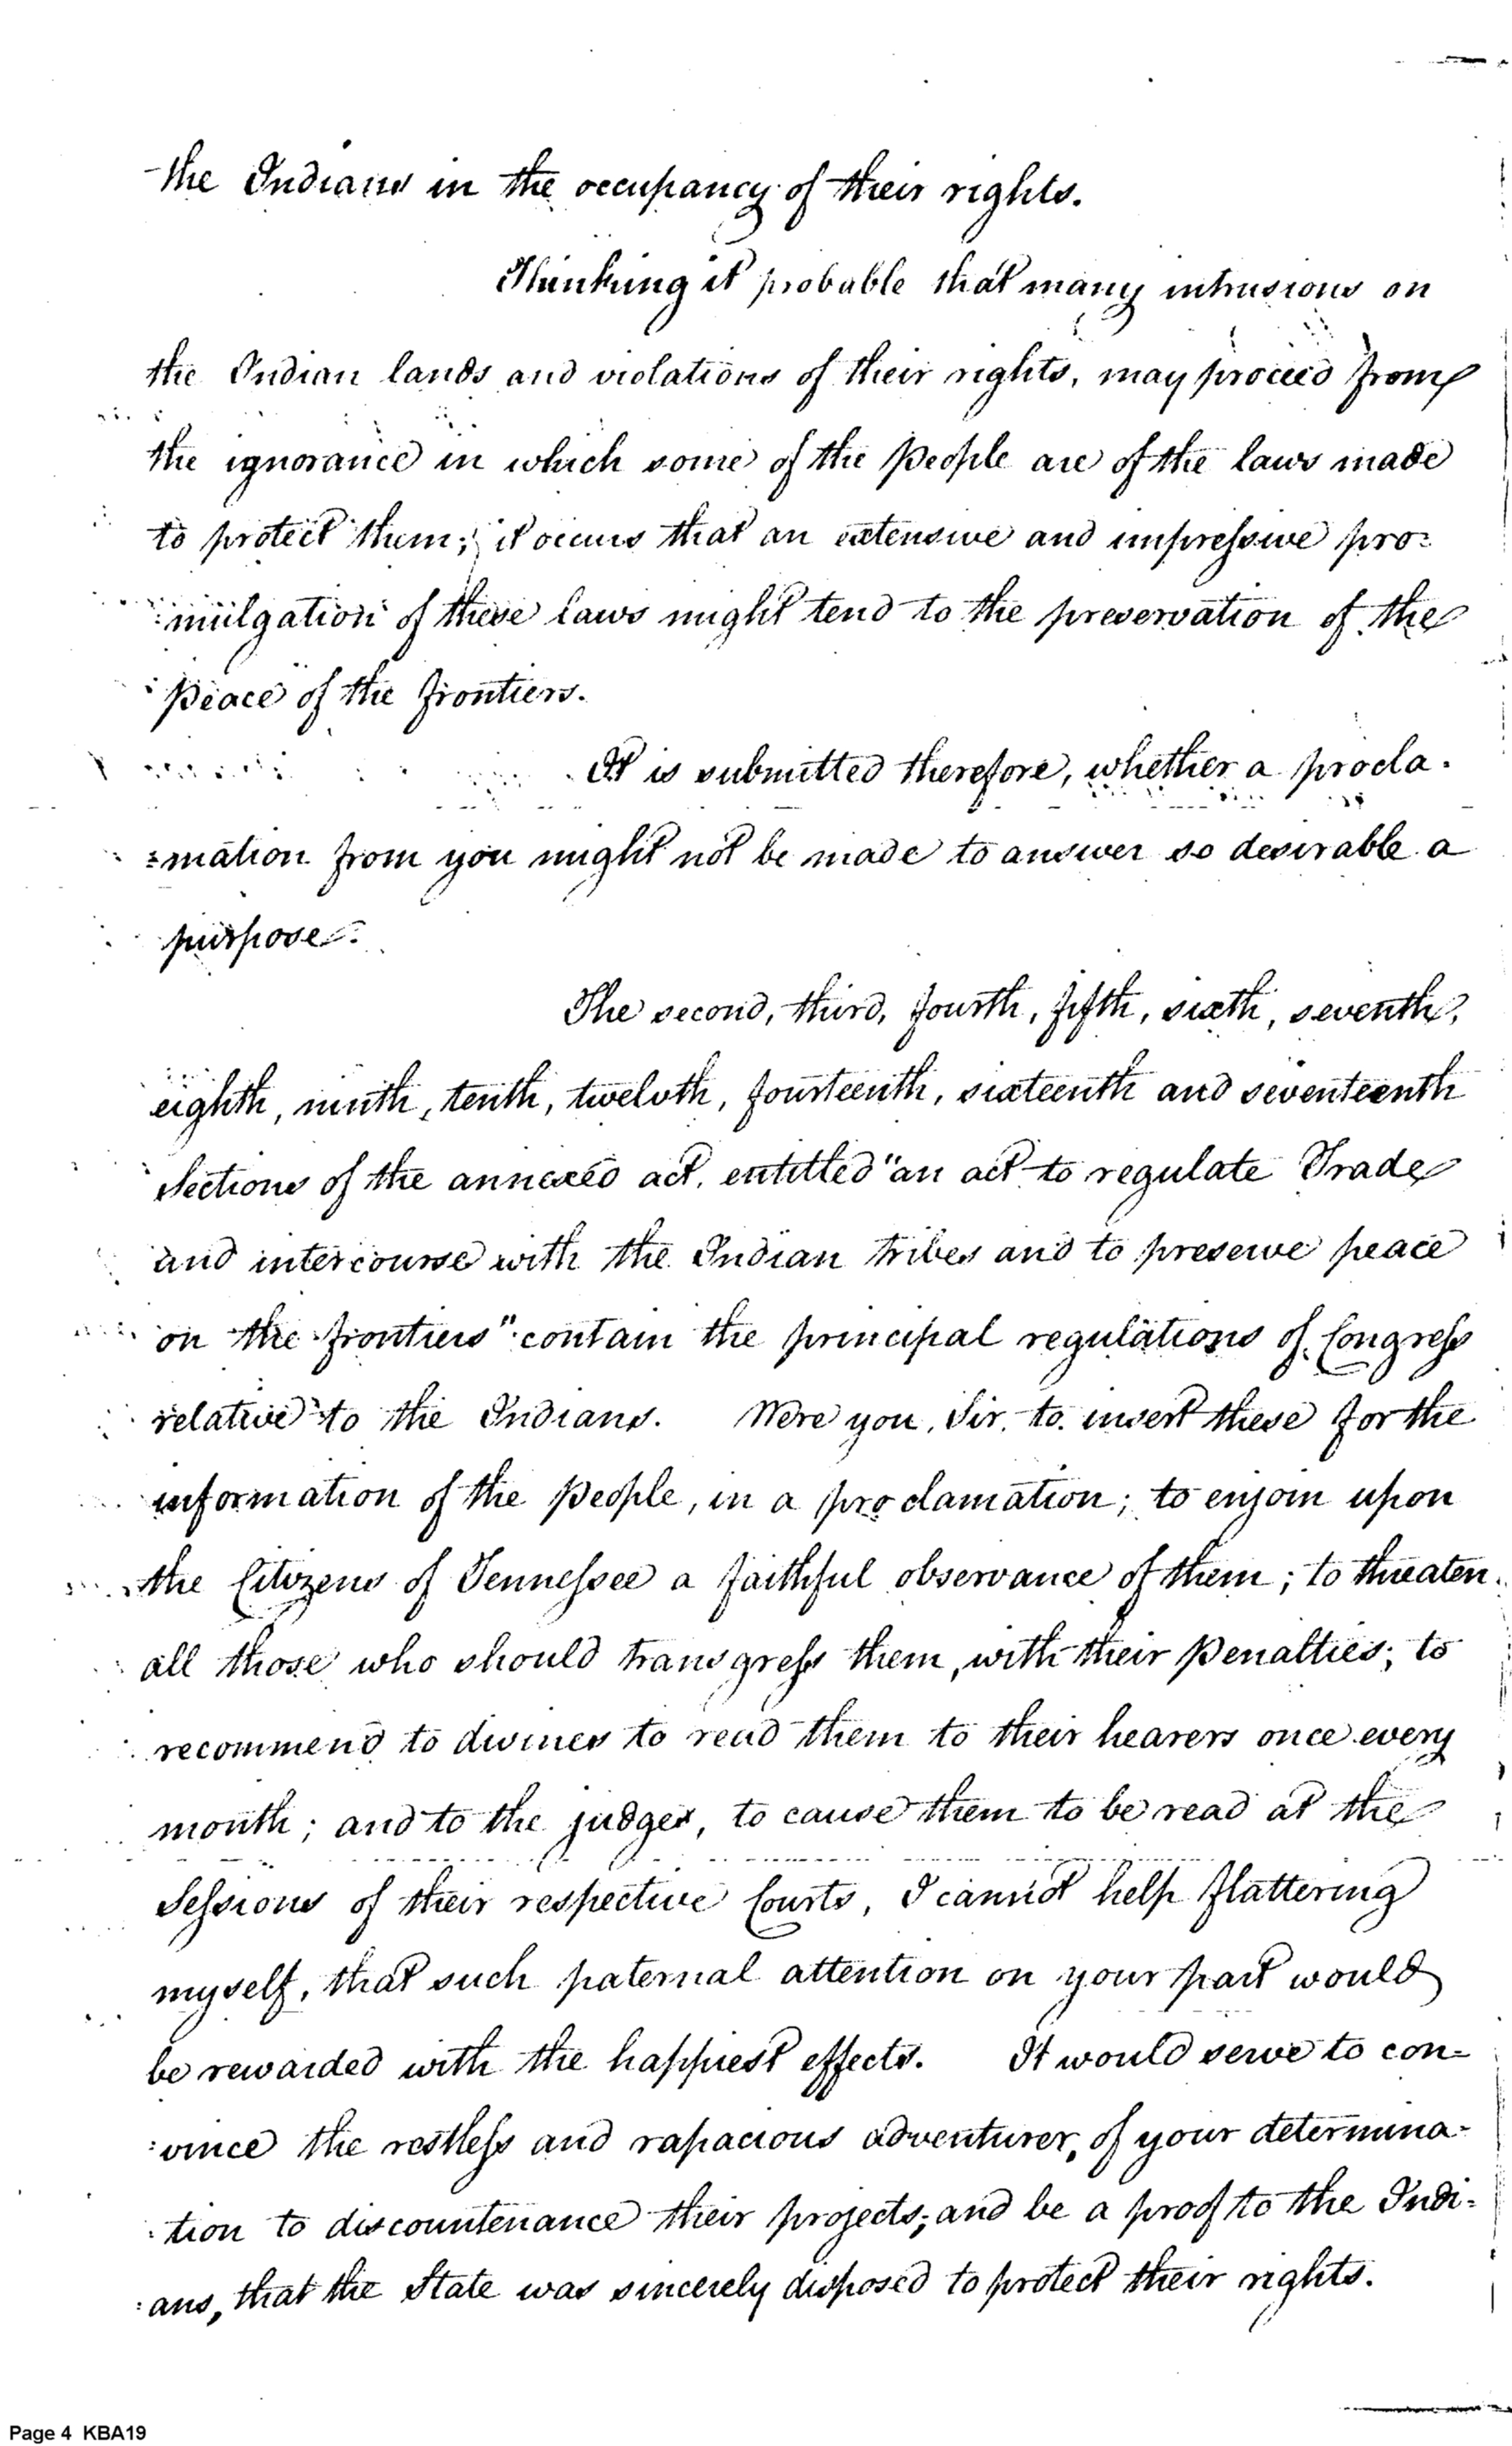 the Indians in the occupancy of their rights.
Thinking it probable that many intrusions on
the Indian lands and violations of their rights, may proceed from
the ignorance in which some of the people are of the laws made
to protect them; it occurs that an extensive and impressive pro=
:mulgation of these laws might tend to the preservation of the
peace of the frontiers.
It is submitted therefore, whether a procla.
=mation from you might not be made to answer so desirable a
purpose.
The second, third, fourth, fifth, sixth, seventh,
eighth, ninth, tenth, twelvth, fourteenth, sixteenth and seventeenth
Sections of the annexed act, entitled "an act to regulate Trade
and intercourse with the Indian tribes and to preserve peace
on the frontiers" contain the principal regulations of Congress
relative to the Indians. Were you, Sir, to insert these for the
information of the people, in a proclamation; to enjoin upon
the Citizens of Tennessee a faithful observance of them; to threaten
all those who should transgress them, with their penalties; to
recommend to divines to read them to their hearers once every
month; and to the judges, to cause them to be read at the
Sessions of their respective Courts, I cannot help flattering
myself, that such paternal attention on your part would
be rewarded with the happiest effects. It would serve to con=
:vince the restless and rapacious adventurer, of your determina=
:tion to discountenance their projects; and be a proof to the Indi=
:ans, that the State was sincerely disposed to protect their rights.
Page 4 KBA19